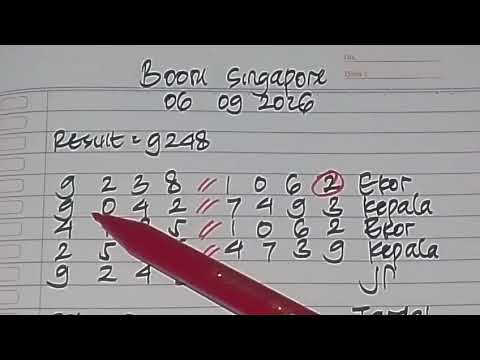 Boom Singapore
06 09 2026
Result = 9248
9 2 3 8 // 1 0 6 2 Ekor
9 0 4 2 // 7 4 9 3 Kepala
4 5 // 1 0 6 2 Ekor
2 5 // 4 7 3 9 Kepala
9 2 4 JP